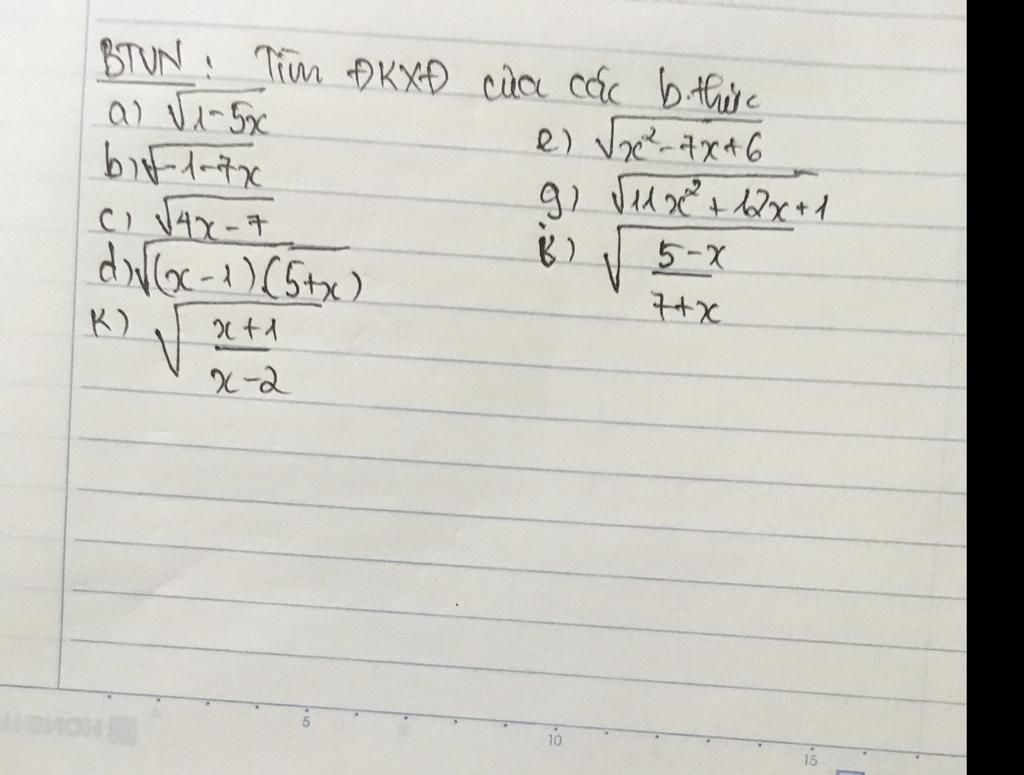 BTVN : Tìm ĐKXĐ của các b.thức
a) √1-5x
b) √-1-7x
c) √4x-7
d) √(x-1).(5+x)
K) √x+1
x-2
e) √x²-7x+6
g) √11x²+12x+1
√5-x
7+x
5
10
15